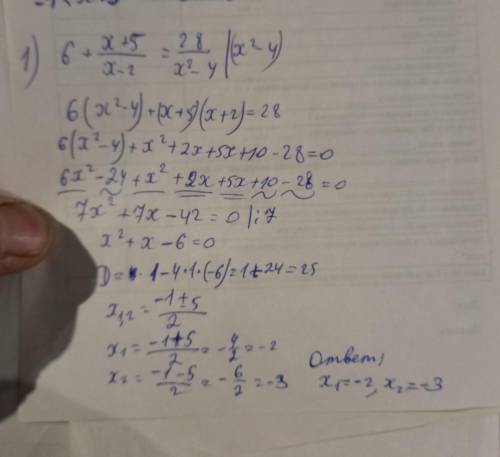 1) 6 + (x+5)/(x-2) = 28/(x²-4) |(x²-4)
6(x²-4)+(x+5)(x+2)=28
6(x²-4)+x²+2x+5x+10-28=0
6x²-24+x²+2x+5x+10-28=0
7x²+7x-42=0 |:7
x²+x-6=0
D=1-4·1·(-6)=1+24=25
x₁,₂=(-1±5)/2
x₁=(-1+5)/2=-4/2=-2
x₂=(-1-5)/2=-6/2=-3
Ответ:
x₁=-2, x₂=-3